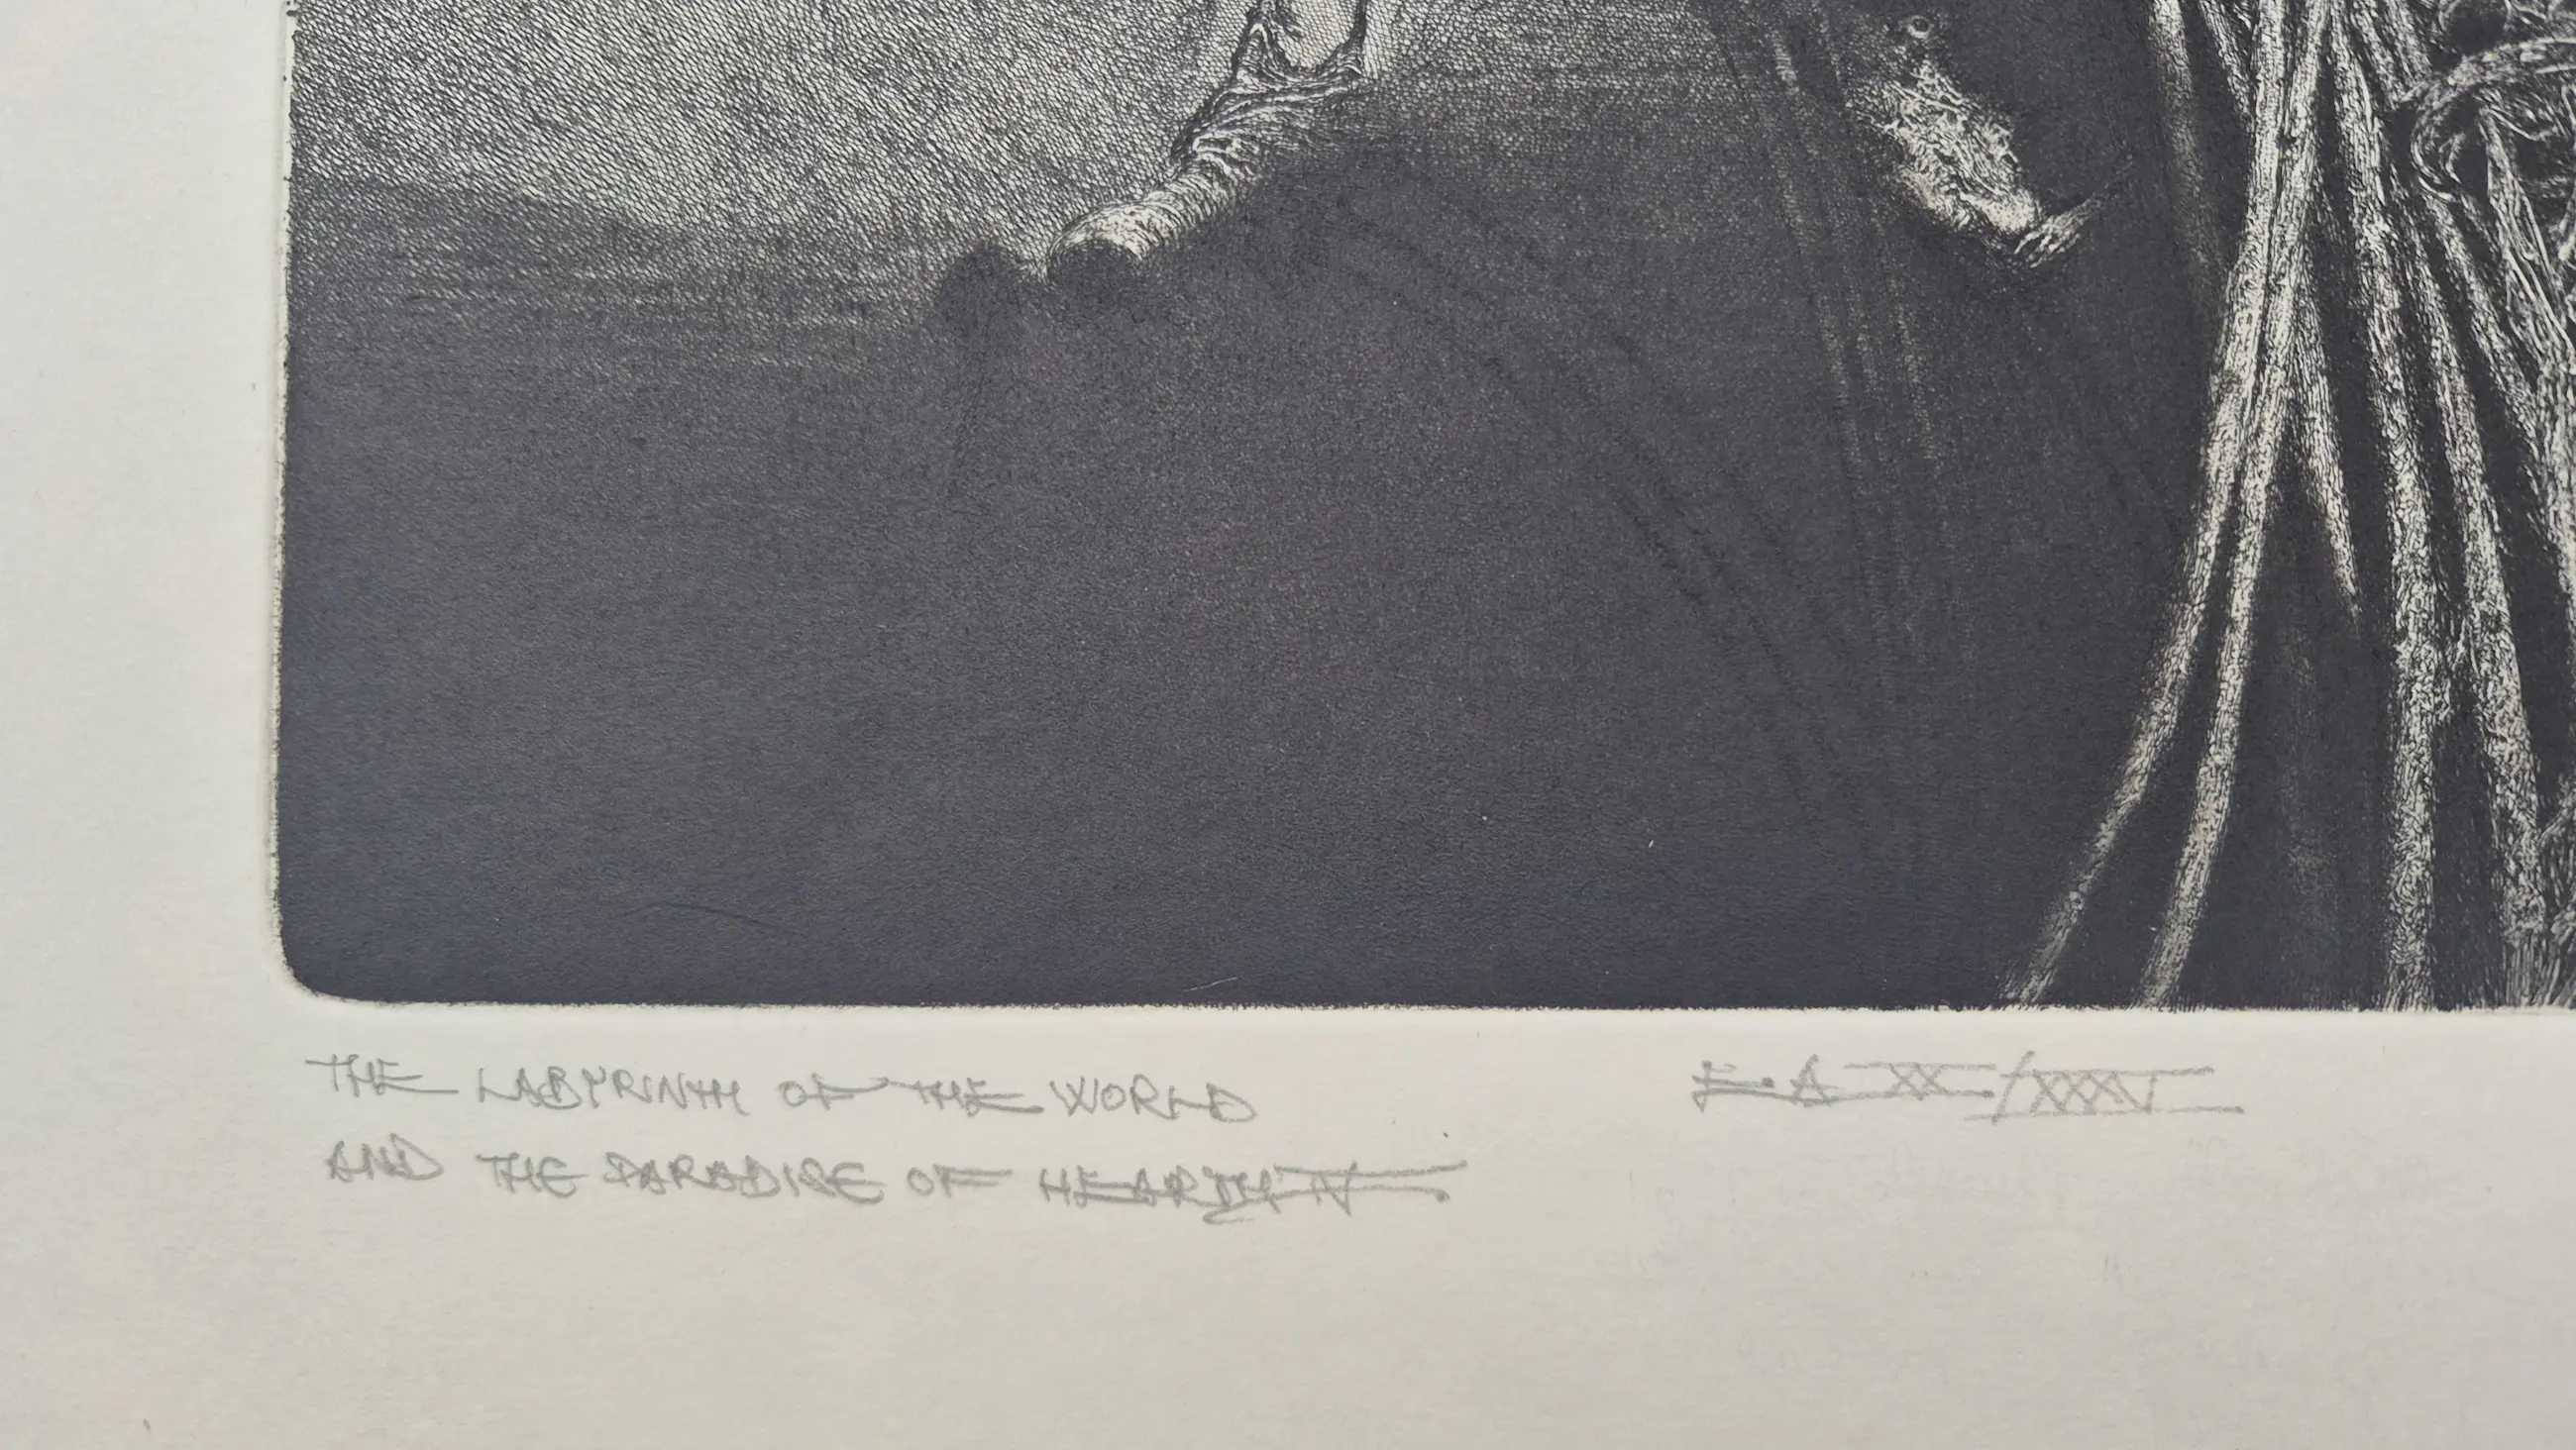 THE LABYRINTH OF THE WORLD
AND THE PARADISE OF HEART IV
E.A XX/XXXV